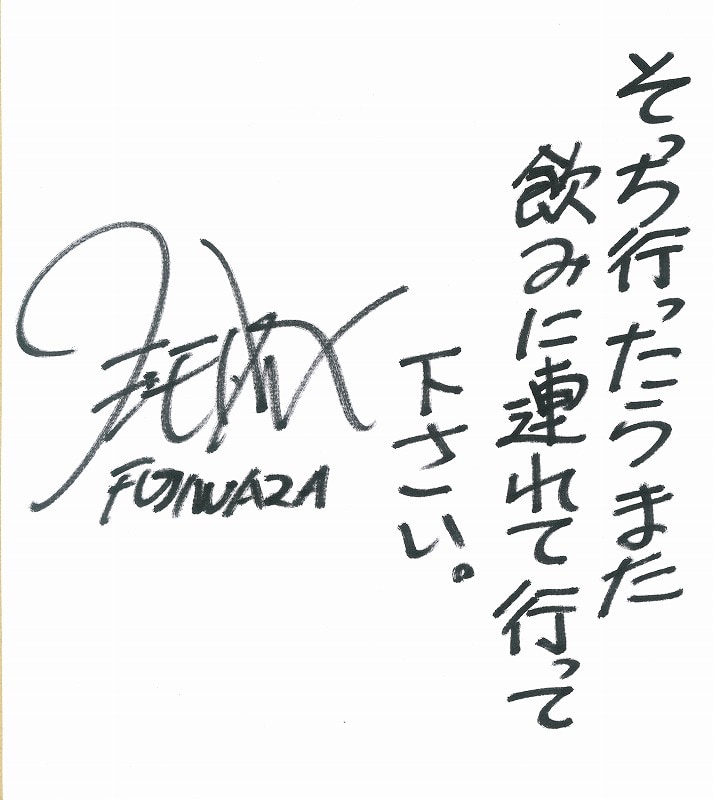 そっち行ったらまた
飲みに連れて行って
下さい。
FUJIWARA